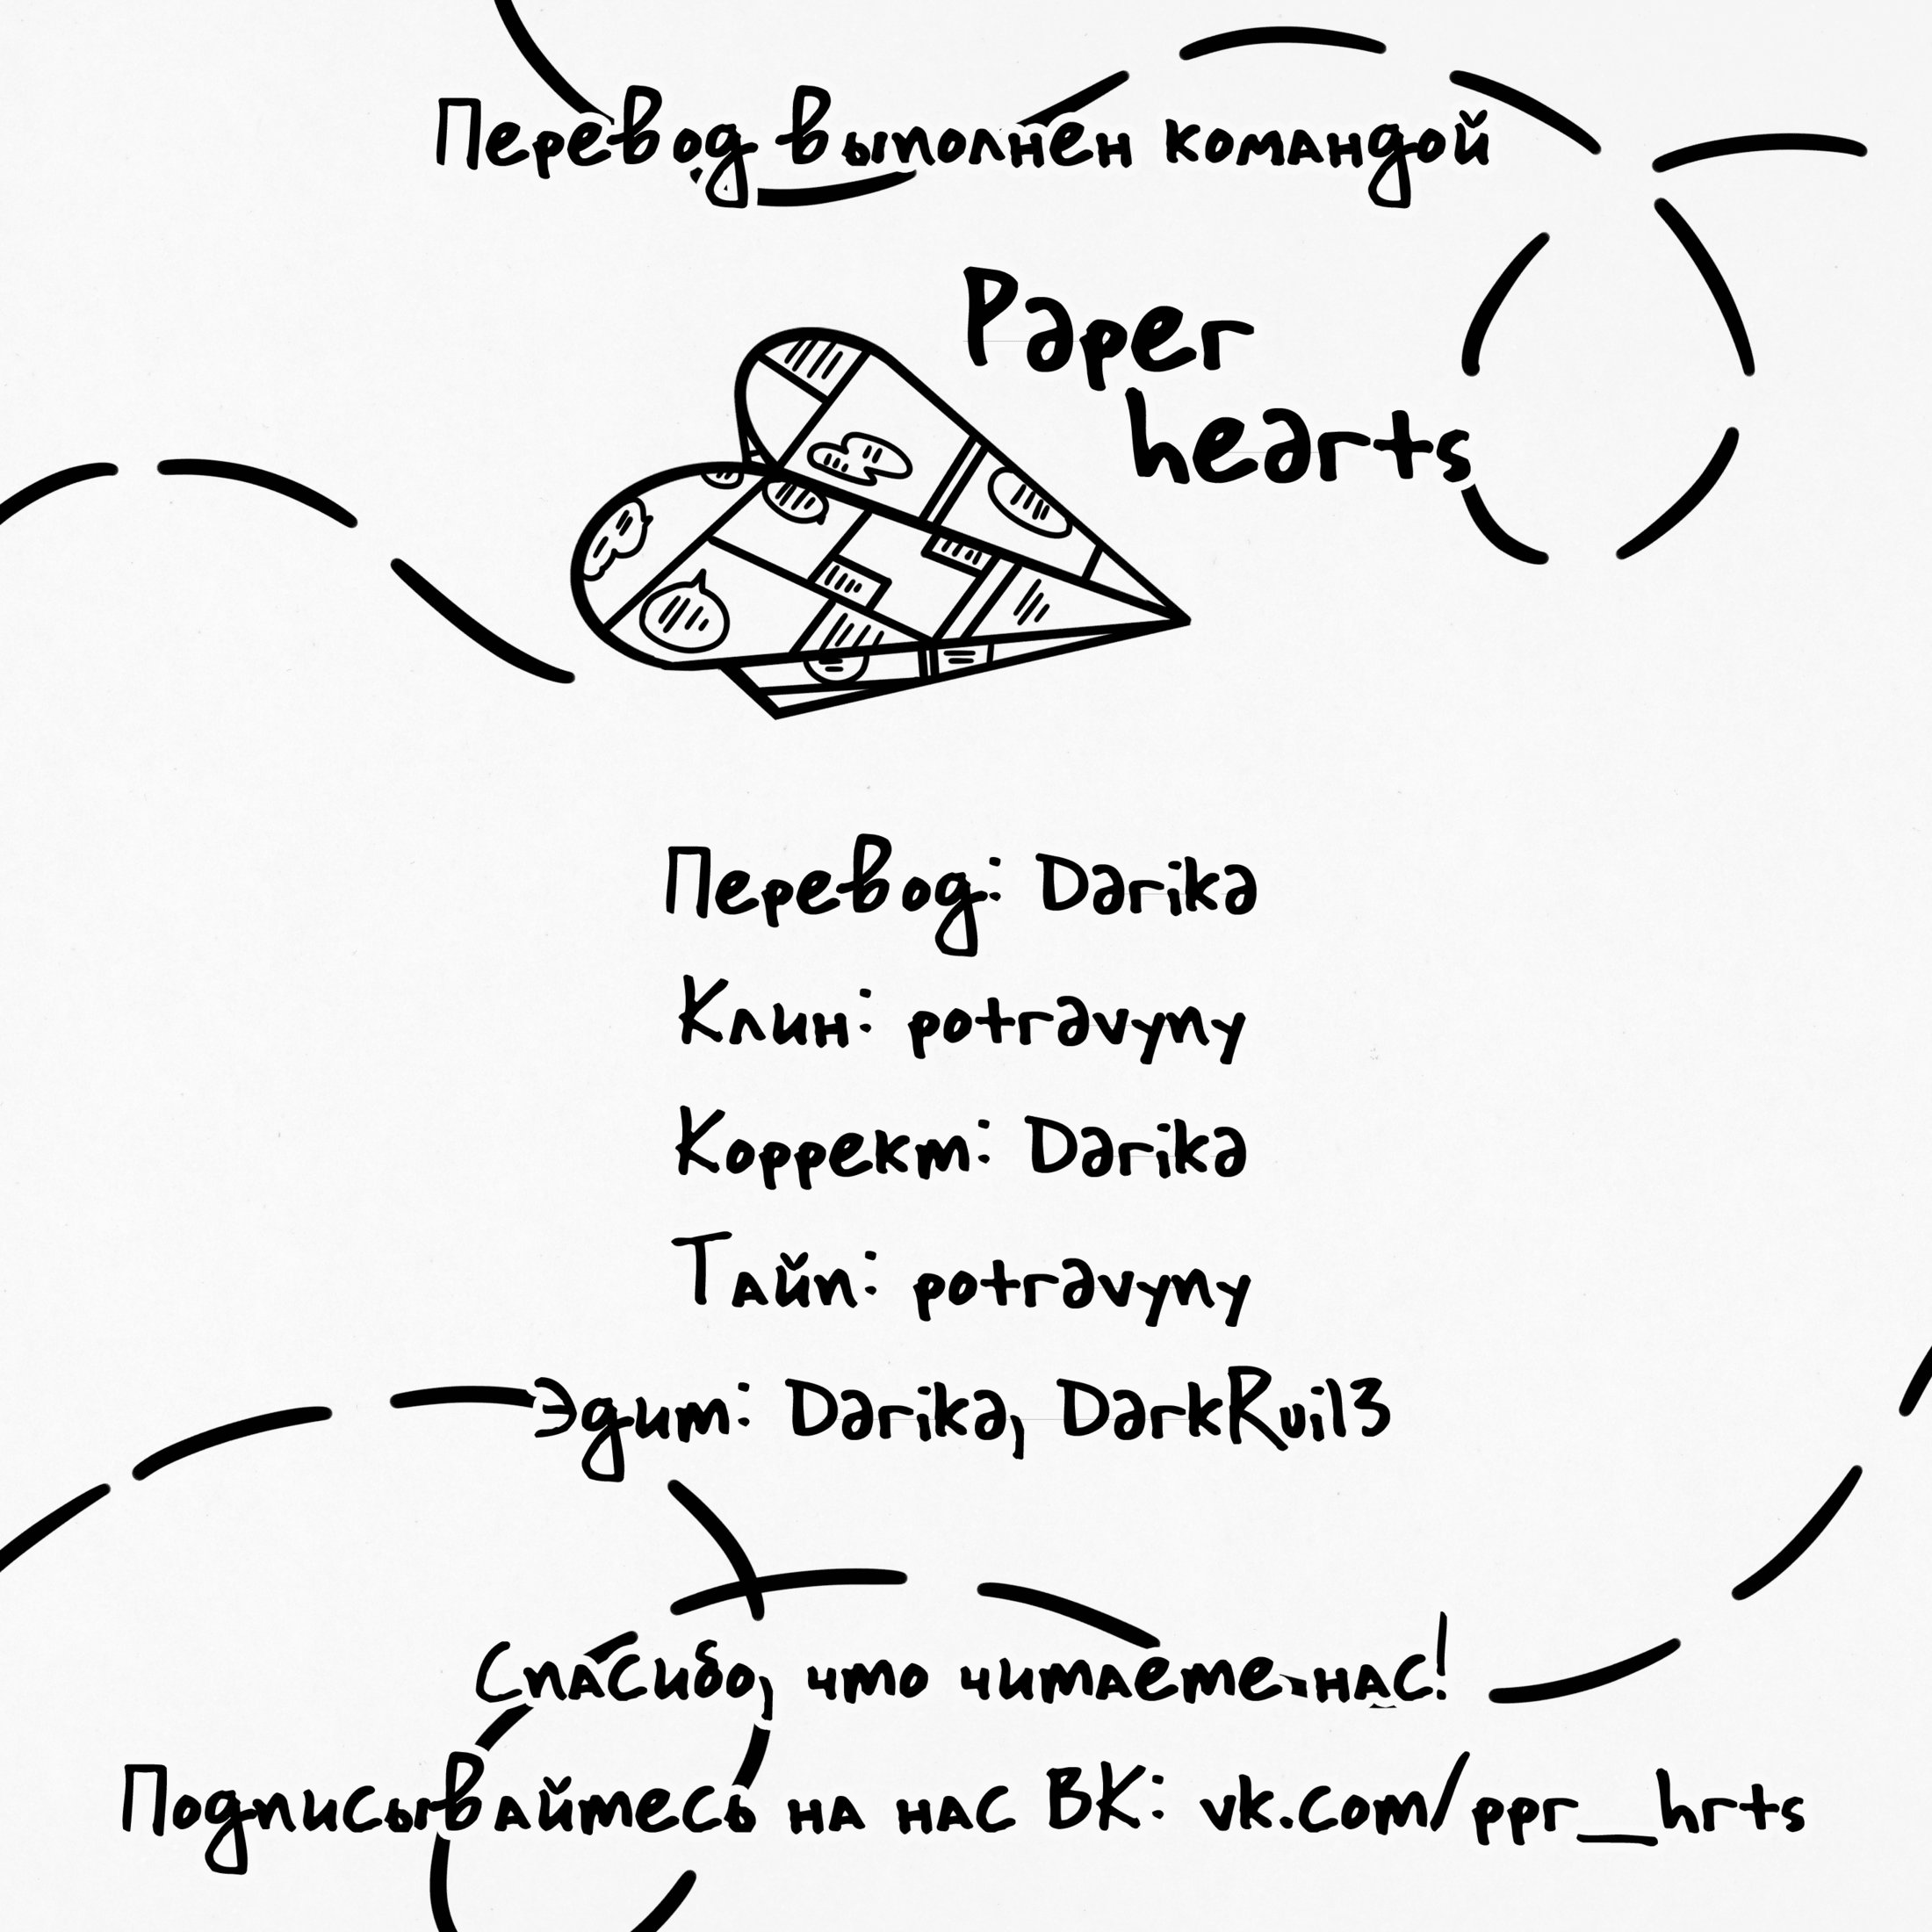 Перевод выполнен командой
Paper
hearts
Перевод: Darika
Клин: potravyny
Коррект: Darika
Тайп: potravyny
Эдит: Darika, DarkRuil3
Спасибо, что читаете нас!
Подписывайтесь на нас ВК: vk.com/ppr__hrts